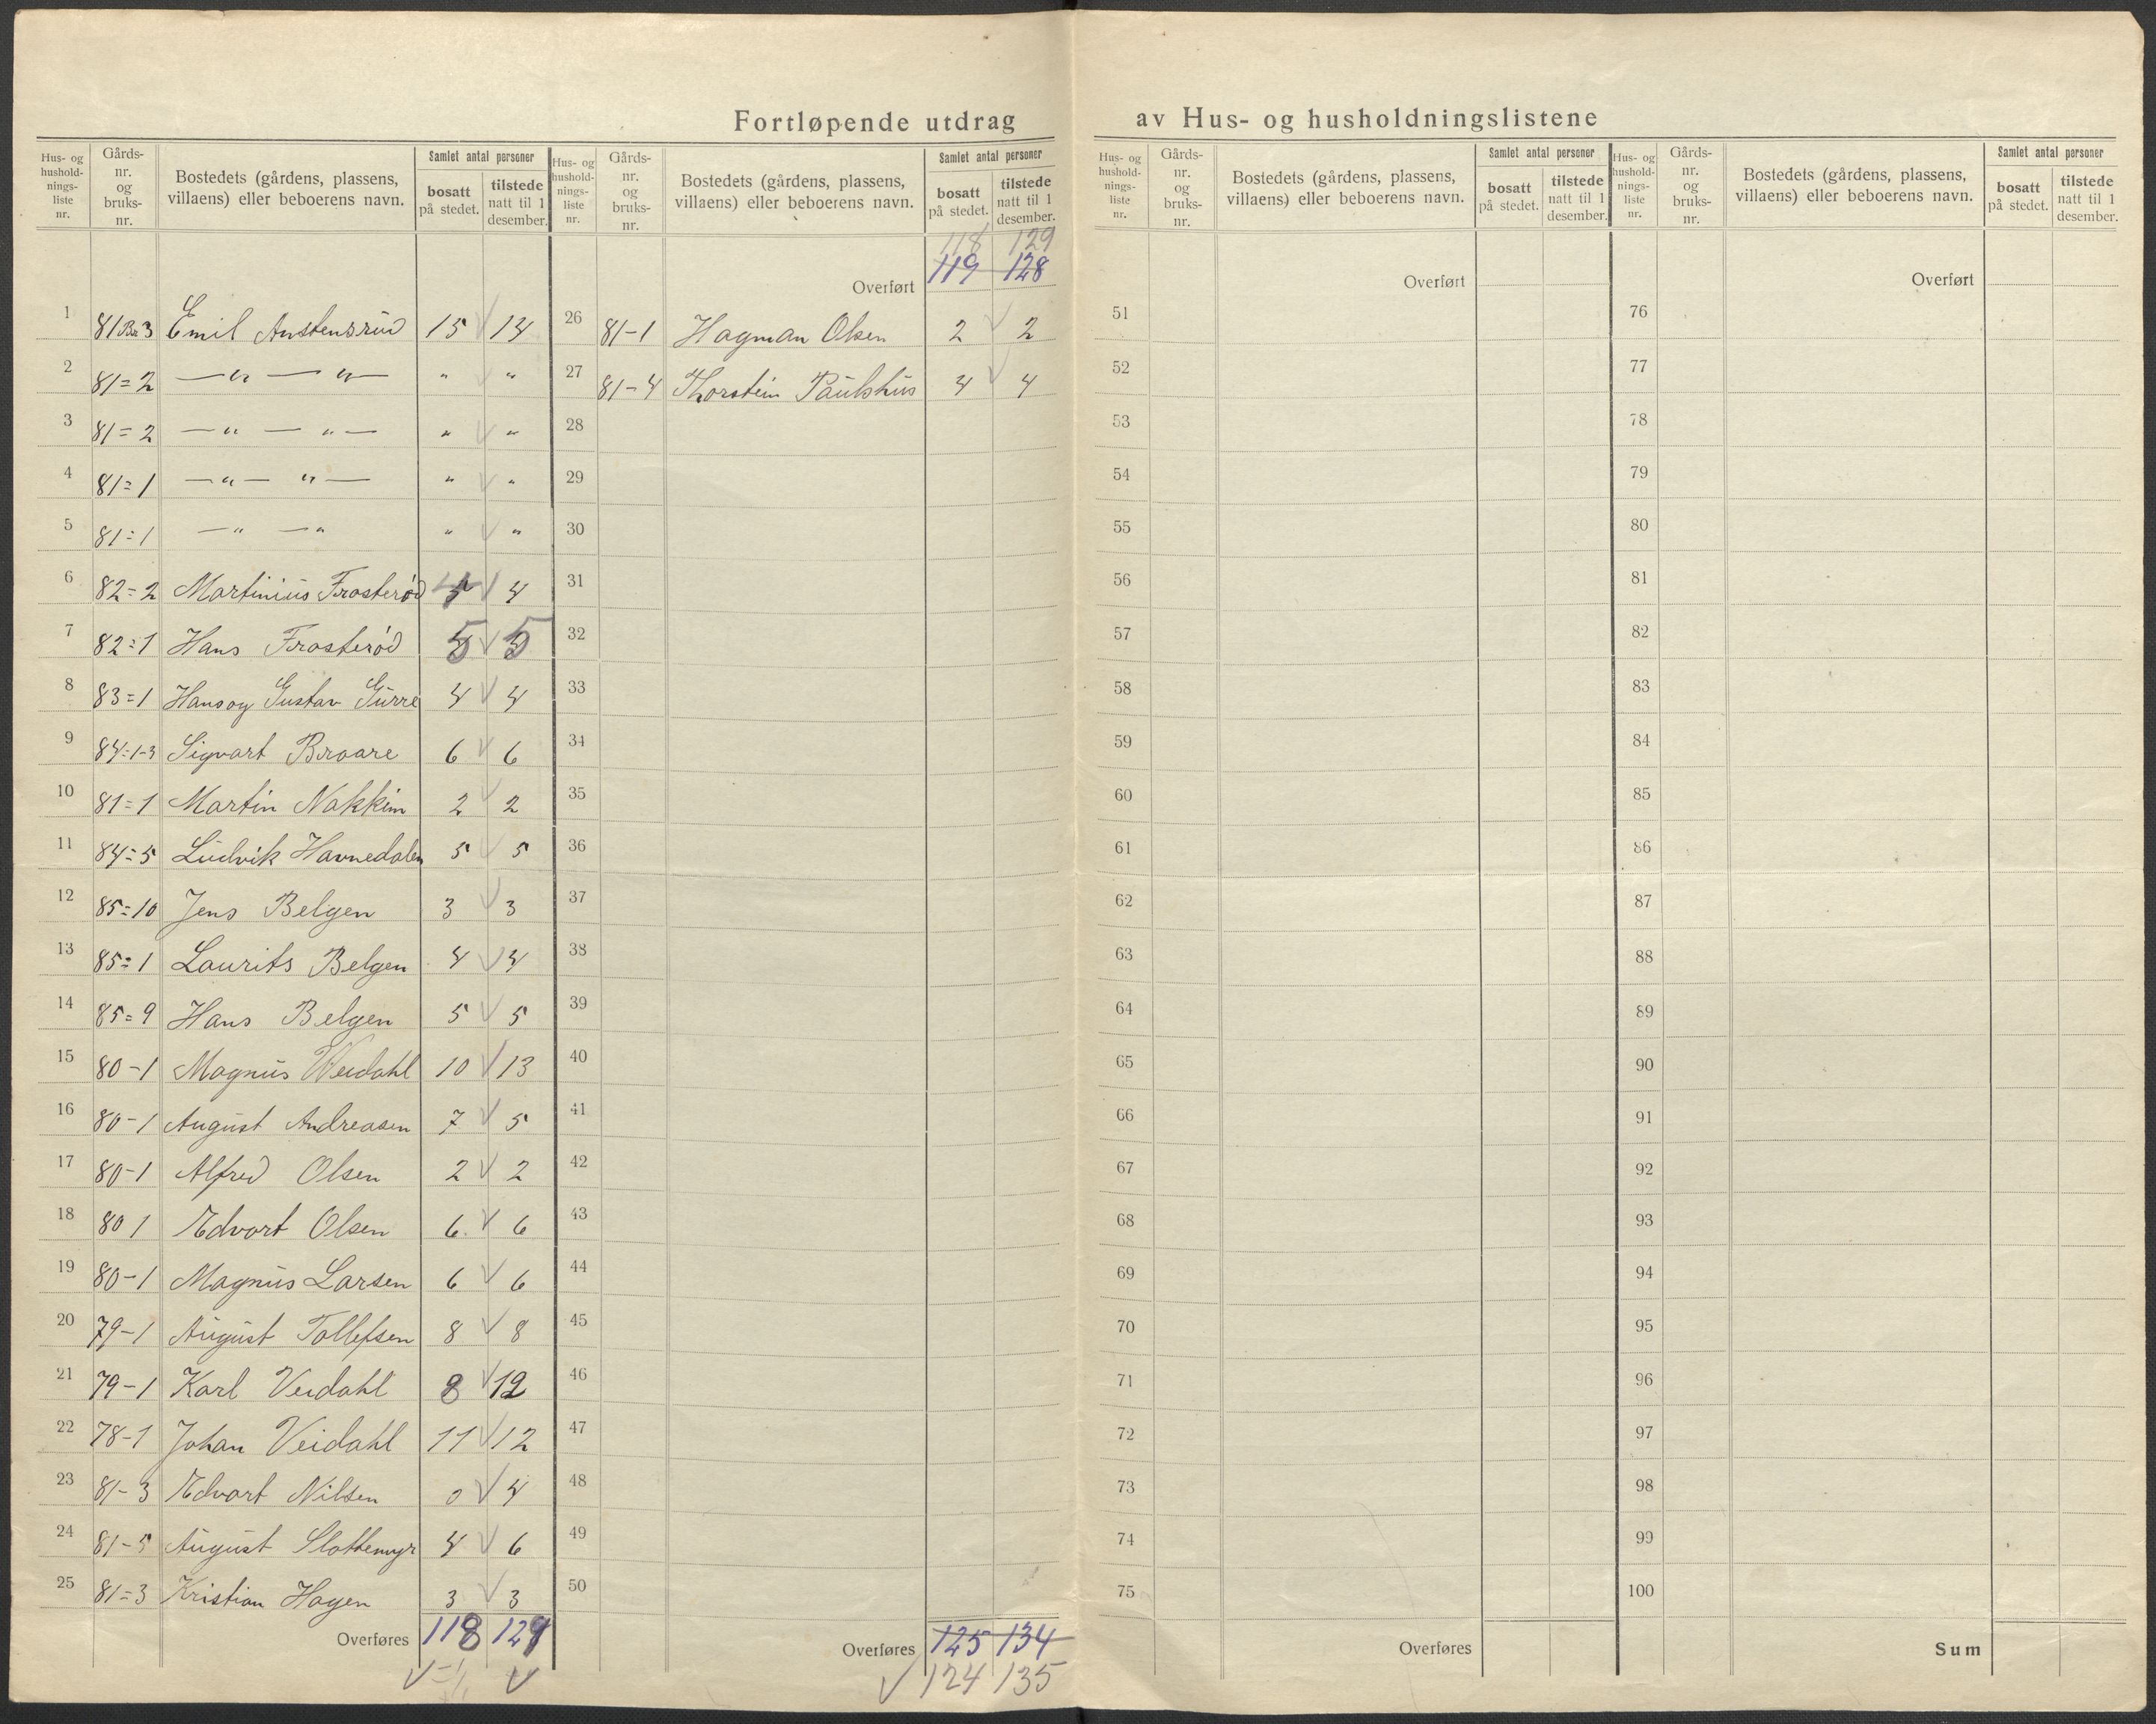 Fortløpende utdrag av Hus- og husholdningslistene
Hus- og hushold-nings-liste nr. Gårds-nr. og bruks-nr. Bostedets (gårdens, plassens, villaens) eller beboerens navn. Samlet antal personer bosatt på stedet. tilstede natt til 1 desember.
1 81 Br. 3 Emil Anstensrud 15 √ 14
2 81=2 —"— —"— " √ "
3 81=2 —"— —"— " √ "
4 81=1 —"— "— " √ "
5 81=1 —"— —" " √ "
6 82=2 Martinius Frosterød 4 √ 4
7 82=1 Hans Frosterød 5 √ 5
8 83=1 Hans og Gustav Gurre 4 √ 4
9 84=1-3 Sigvart Braare 6 √ 6
10 81=1 Martin Nakkim 2 √ 2
11 84=5 Ludvik Havnedalen 5 √ 5
12 85=10 Jens Belgen 3 √ 3
13 85=1 Laurits Belgen 4 √ 4
14 85=9 Hans Belgen 5 √ 5
15 80-1 Magnus Weidahl 10 √ 13
16 80-1 August Andreasen 7 √ 5
17 80-1 Alfred Olsen 2 √ 2
18 80 1 Edvart Olsen 6. √ 6
19 80-1 Magnus Larsen 6 √ 6
20 79-1 August Tollefsen 8 √ 8
21 79-1 Karl Veidahl 8 √ 12
22 78-1 Johan Veidahl 11 √ 12
23 81-3 Edvart Nilsen 0 √ 4
24 81-5 August Slottemyr 4 √ 6
25 81=3 Kristian Hagen 3 √ 3
Overføres 118 129
√ √
Hus- og hushold-nings-liste nr. Gårds-nr. og bruks-nr. Bostedets (gårdens, plassens, villaens) eller beboerens navn. Samlet antal personer bosatt på stedet. tilstede natt til 1 desember.
118 129
Overført 119 128
26 81-1 Hagman Olsen 2 √ 2
27 81-4 Thorstein Paulshus 4 √ 4
28
29
30
31
32
33
34
35
36
37
38
39
40
41
42
43
44
45
46
47
48
49
50
Overføres 125 134
√ 124 135
Hus- og hushold-nings-liste nr. Gårds-nr. og bruks-nr. Bostedets (gårdens, plassens, villaens) eller beboerens navn. Samlet antal personer bosatt på stedet. tilstede natt til 1 desember.
Overført
51
52
53
54
55
56
57
58
59
60
61
62
63
64
65
66
67
68
69
70
71
72
73
74
75
Overføres
Hus- og hushold-nings-liste nr. Gårds-nr. og bruks-nr. Bostedets (gårdens, plassens, villaens) eller beboerens navn. Samlet antal personer bosatt på stedet. tilstede natt til 1 desember.
Overført
76
77
78
79
80
81
82
83
84
85
86
87
88
89
90
91
92
93
94
95
96
97
98
99
100
Sum